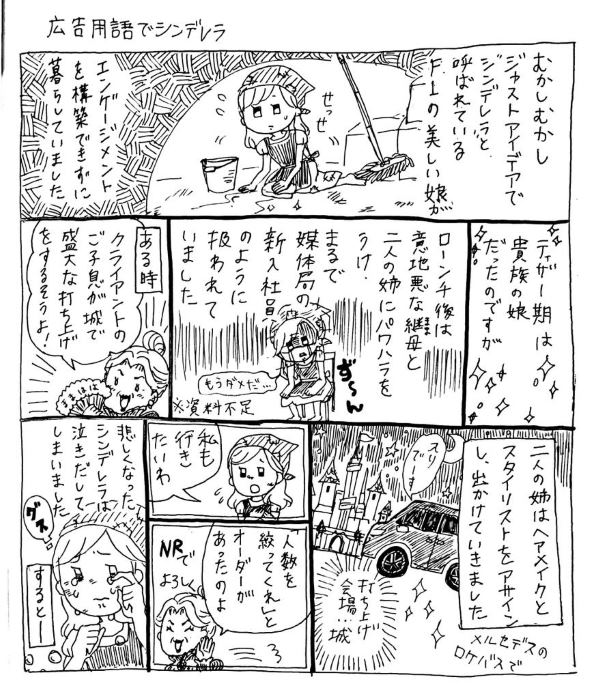 広告用語でシンデレラ
むかしむかし
ジャストアイデアで
シンデレラと
呼ばれている
F1の美しい娘が
せっ
せっ
エンゲージメント
を構築できずに
暮らしていました
ティザー期は
貴族の娘
だったのですが
ローンチ後は
意地悪な継母と
二人の姉にパワハラを
うけ、
まるで
媒体局の
新入社員
のように
扱われて
いました
ず〜ん
もうダメだ…
※資料不足
ある時
クライアントの
ご子息が城で
盛大な打ち上げ
をするそうよ!
二人の姉はヘアメイクと
スタイリストをアサイン
し、出かけていきました
メルセデスの
ロケバスで
打ち上げ
会場…城
私も
行き
たいわ
人数を
絞ってくれと
オーダーが
あったのよ
NRで
よろし
悲しくなった
シンデレラは
泣きだして
しまいました
グス
すると—